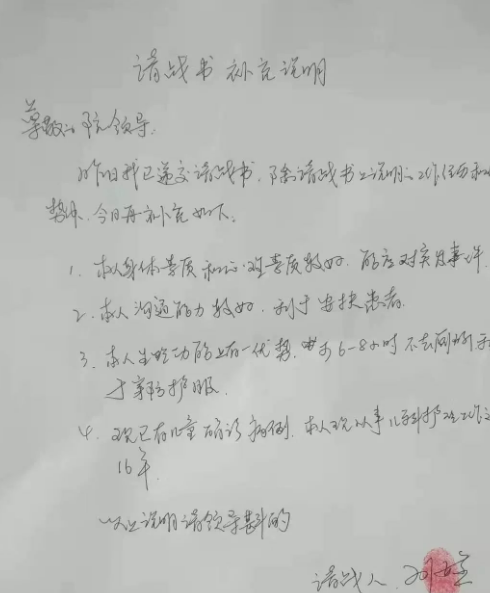 请战书补充说明
尊敬的院领导:
昨日我已递交请战书,除请战书上说明的工作经历和
势外,今日再补充如下:
1、本人身体素质和心理素质较好,能应对突发事件
2、本人沟通能力较好,利于安抚患者
3、本人生理功能上有一优势,
6-8小时不去厕所
于穿防护服
4、现已有儿童确诊病例,本人现从事儿科护理工作
16年
以上说明请领导斟酌
请战人:刘